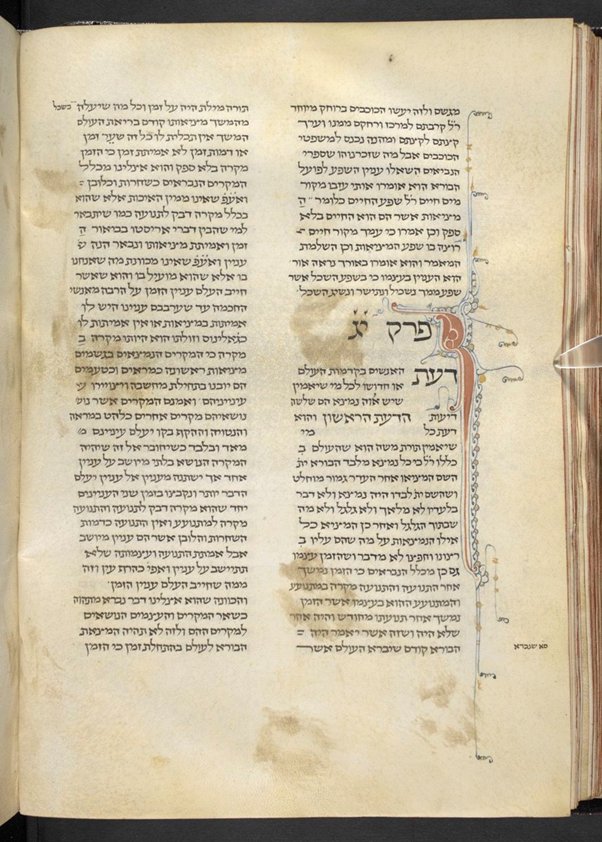 מגשם ולזה יעשו הכוכבים ברוחק מיוחד
ר״ל קרבתם למרכז ורחקם ממנו וערך
קצתם לקצתם ומהנה נכנס למשפטי
הכוכבים אבל מה שזכרנוהו שספרי
הנביאים השאלו ענין השפע לפועל
הבורא הוא אומרו אותי עזבו מקור
מים חיים ר״ל שפע החיים כלומר ה
מציאות אשר הם הוא החיים בלא
ספק וכן אמרו כי עמך מקור חיים
רוצה בו שפע המציאות וכן השלמת
המאמר והוא אומרו באורך נראה אור
הוא הענין בעצמו כי בשפע השכל אשר
שפע ממך נשכיל ונתישר ונשיג השכל
פרק יג
דעת
האנשים בקדמות העולם
או חדושו לכל מי שיאמין
שיש אלוה נמצא הם שלשה
דיעות הדעת הראשון והוא
דעת כל מי
שיאמין תורת משה הוא שהעולם ב
כללו ר״ל כי כל נמצא מלבד הבורא ית
השם המציאו אחר העדר גמור מוחלט
ושהשם ית׳ לבדו היה נמצא ולא דבר
בלעדיו לא מלאך ולא גלגל ולא מה
שבתוך הגלגל ואחר כן המציא כל
אילו הנמצאות על מה שהם עליו ב
רצונו וחפצו לא מדבר ושהזמן עצמו
גם כן מכלל הנבראים כי הזמן נמשך
אחר התנועה והתנועה מקרה במתנועע
והמתנועע ההוא בעצמו אשר הזמן
נמשך אחר תנועתו מחודש והיה אחר
שלא היה ושזה אשר יאמר היה
הבורא קודם שיברא העולם אשר
תורה מילת היה על זמן וכל מה שיעלה בשכל
מהמשך מציאותו קודם בריאת העולם
המשך אין תכלית לו כל זה שער זמן
או דמות זמן לא אמיתת זמן כי הזמן
מקרה בלא ספק והוא אצלינו מכלל
המקרים הנבראים כשחרות וכלובן
ואע״פ שאינו ממין האיכות אלא שהוא
בכלל מקרה דבק לתנועה כמו שיתבאר
למי שהבין דברי אריסטו בביאור ה
זמן ואמיתת מציאותו ונבאר הנה
ענין ואע״פ שאינו מכוונת מה שאנחנו
בו אלא שהוא מועיל בו והוא שאשר
חייב העלם ענין הזמן על הרבה מאנשי
החכמה עד שערבבם ענינו היש לו
אמיתות במציאות או אין אמיתות לו
כגאלינוס וזולתו הוא היותו מקרה ב
מקרה כי המקרים הנמצאים בגשמים
מציאות ראשונה כמראים וכטעמים
הם יובנו בתחלת מחשבה ויצויירו
עיניניהם ואמנם המקרים אשר נוש
נושאיהם מקרים אחרים כלהט במראה
והנטויה וההקף בקו יעלם עינינם מ
מאד ובלבד כשיחובר אל זה שיהיה
המקרה הנושא בלתי מיושב על ענין
אחד אך ישתנה מענין אל ענין יעלם
הדבר יותר ונקבצו בזמן שני הענינים
יחד שהוא מקרה דבק לתנועה והתנועה
מקרה למתנועע ואין התנועה כדמות
השחרות והלובן אשר הם ענין מיושב
אבל אמתת התנועה ועצמותה שלא
תתיישב על ענין ואפי׳ כהרף עין וזה
ממה שחייב העלם ענין הזמן
והכוונה שהוא אצלינו דבר נברא מתהוה
כשאר המקרים והעצמים הנושאים
למקרים ההם ולזה לא תהיה המצאת
הבורא לעולם בהתחלת זמן כי הזמן
סא שנברא